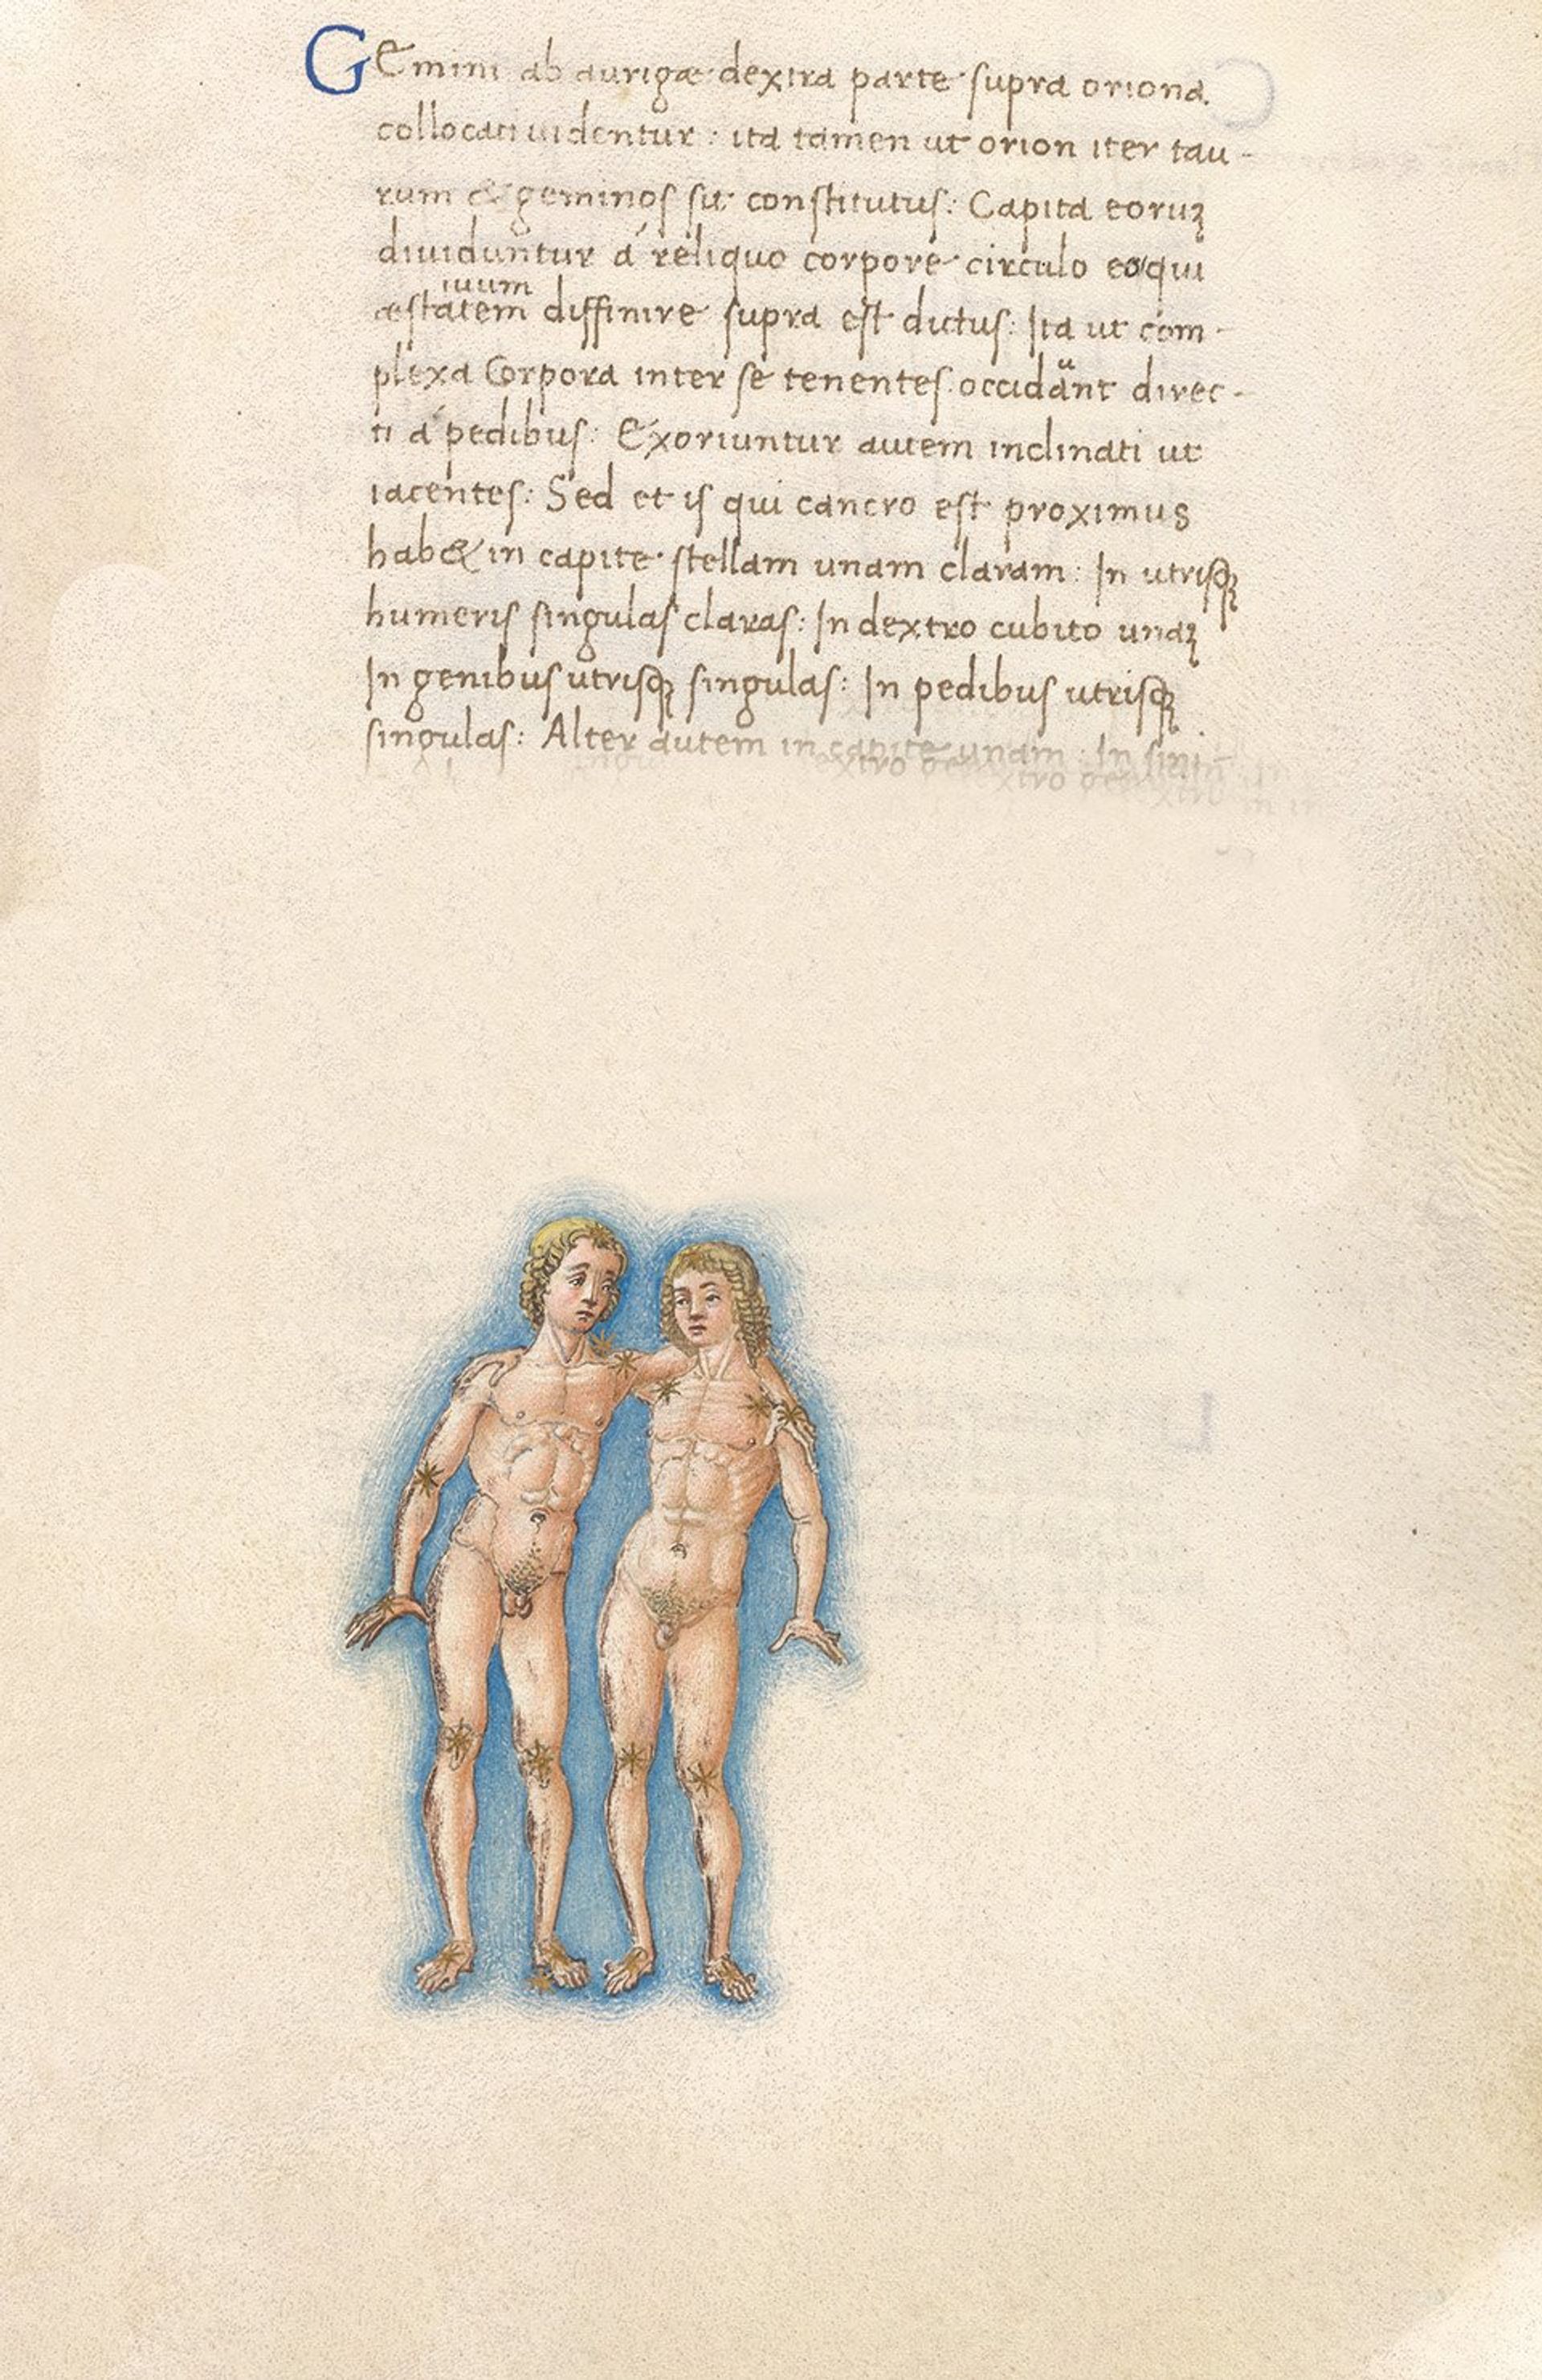 GEmini ab aurigæ dextra parte supra oriona.
collocati uidentur : ita tamen ut orion iter tau-
rum & geminos sit constitutus: Capita eoruꝫ
diuiduntur á reliquo corpore circulo eo qui
iuum
æstatem diffinire supra est dictus: Ita ut com-
plexa Corpora inter se tenentes occidant direc-
u
ti á pedibus: Exoriuntur autem inclinati ut
iacentes: Sed et is qui cancro est proximus
hab& in capite stellam unam claram: In utrisqꝫ
humeris singulas claras: In dextro cubito unaꝫ
In genibus utrisqꝫ singulas: In pedibus utrisqꝫ
singulas: Alter autem in capite unam: In sini-